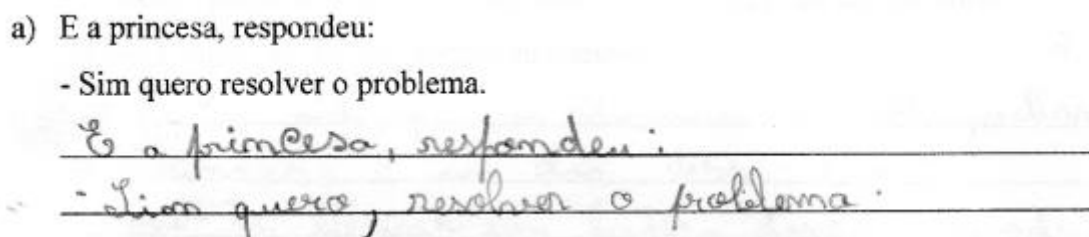 a) E a princesa, respondeu:
- Sim quero resolver o problema.
E a princesa, respondeu :
- Sim quero, resolver o problema.